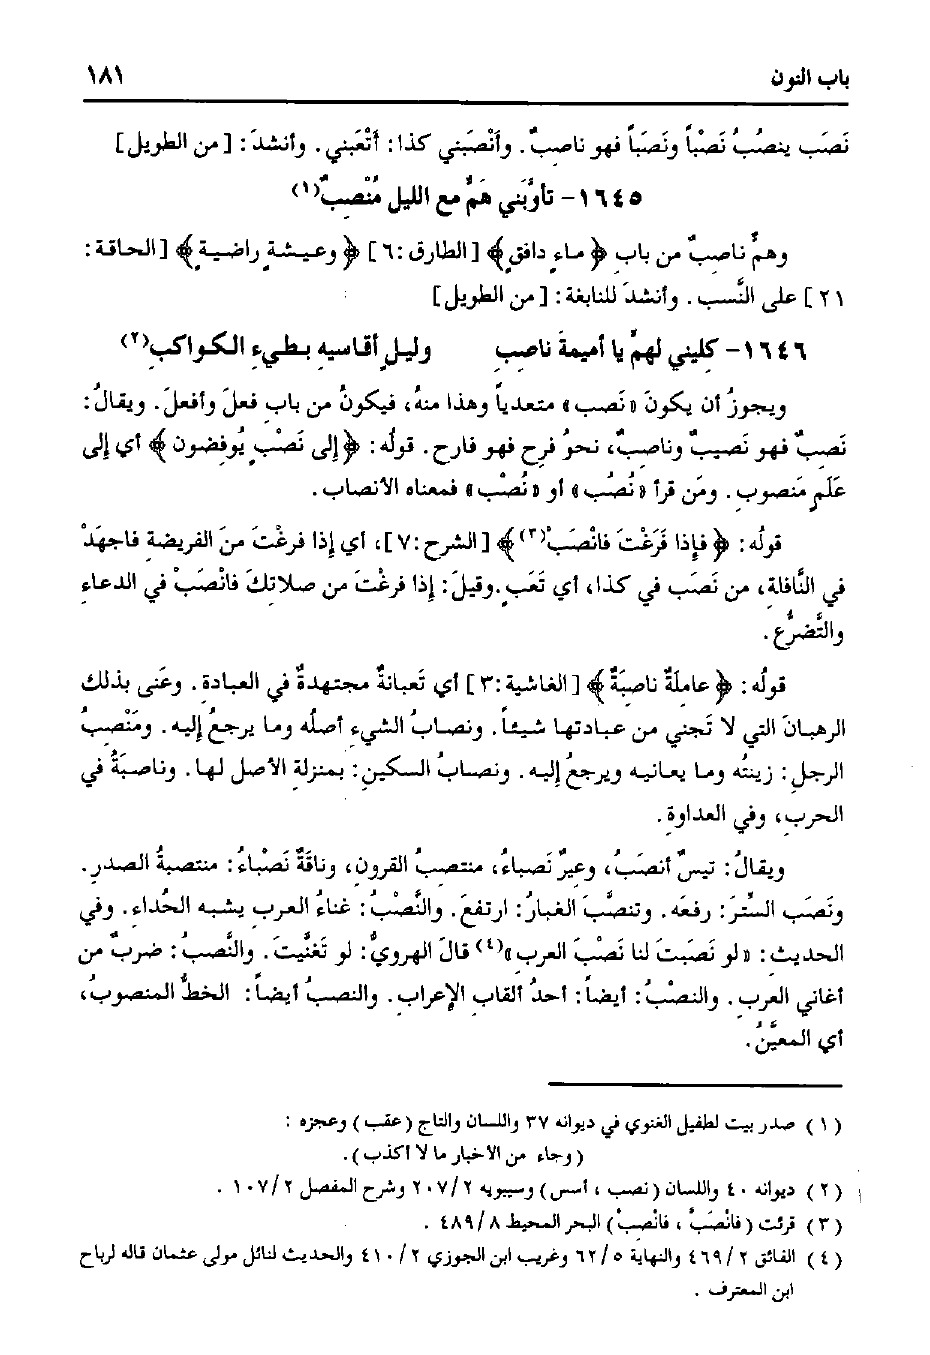 باب النون ١٨١
نَصَب ينصُبُ نَصْباً ونَصَباً فهو ناصبٌ. وأَنْصَبَني كذا: أَتْعَبني. وأنشدَ: [من الطويل]
١٦٤٥- تأوَّبَني هَمٌّ مع الليل مُنْصِبٌ(١)
وهمٌّ ناصبٌ من بابِ ﴿ماءٍ دافقٍ﴾ [الطارق: ٦] ﴿وعيشةٍ راضيةٍ﴾ [الحاقة:
٢١] على النَّسب. وأنشدَ للنابغة: [من الطويل]
١٦٤٦- كِليني لهمٍّ يا أميمةَ ناصبِ وليلٍ أقاسيهِ بطيءِ الكواكبِ(٢)
ويجوزُ أن يكونَ «نَصب» متعدياً وهذا منهُ، فيكونُ من باب فعلَ وأفعلَ. ويقالُ:
نَصِبٌ فهو نَصيبٌ وناصبٌ، نحوُ فرِح فهو فارح. قولُه: ﴿إلى نَصْبٍ يُوفضون﴾ أي إلى
عَلَمٍ مَنصوب. ومَن قرأ «نُصُب» أو «نُصْب» فمعناه الأنصاب.
قولُه: ﴿فإذا فَرَغْتَ فانْصَبْ(٣)﴾ [الشرح: ٧]، أي إذا فرغْتَ منَ الفريضةِ فاجهَدْ
في النَّافلة، من نَصَب في كذا، أي تَعَب. وقيلَ: إذا فرغْتَ من صلاتِكَ فانْصَبْ في الدعاءِ
والتَّضرُّع.
قولُه: ﴿عاملةٌ ناصبَةٌ﴾ [الغاشية: ٣] أي تَعبانةٌ مجتهدةٌ في العبادة. وعَنى بذلك
الرهبانَ التي لا تَجني من عبادتها شيئاً. ونصابُ الشيءِ أصلُه وما يرجعُ إليه. ومَنْصِبُ
الرجلِ: زينتُه وما يعانيه ويرجعُ إليه. ونصابُ السكينِ: بمنزلةِ الأصلِ لها. وناصبَةُ في
الحربِ، وفي العداوةِ.
ويقالُ: تيسٌ أنصَبُ، وعيرٌ نَصباءُ، منتصبُ القرون، وناقةٌ نَصْباءُ: منتصبةُ الصدرِ.
ونَصَب السِّترَ: رفعَه. وتنصَّبَ الغبارُ: ارتفعَ. والنَّصْبُ: غناءُ العرب يشبه الحُداء. وفي
الحديث: «لو نَصَبتَ لنا نَصْبَ العرب»(٤) قالَ الهرويُّ: لو تَغنَّيتَ. والنَّصبُ: ضربٌ من
أغاني العربِ. والنصْبُ: أيضاً: أحدُ ألقابِ الإعرابِ. والنصبُ أيضاً: الخطُّ المنصوبُ،
أي المعيَّنُ.
(١) صدر بيت لطفيل الغنوي في ديوانه ٣٧ واللسان والتاج (عقب) وعجزه:
(وجاء من الأخبار ما لا أكذب).
(٢) ديوانه ٤٠ واللسان (نصب، أسس) وسيبويه ٢/٢٠٧ وشرح المفصل ٢/١٠٧.
(٣) قرئت (فانْصَبّ، فانْصِبْ) البحر المحيط ٨/٤٨٩.
(٤) الفائق ٢/٤٦٩ والنهاية ٥/٦٢ وغريب ابن الجوزي ٢/٤١٠ والحديث لنائل مولى عثمان قاله لرباح
ابن المعترف.